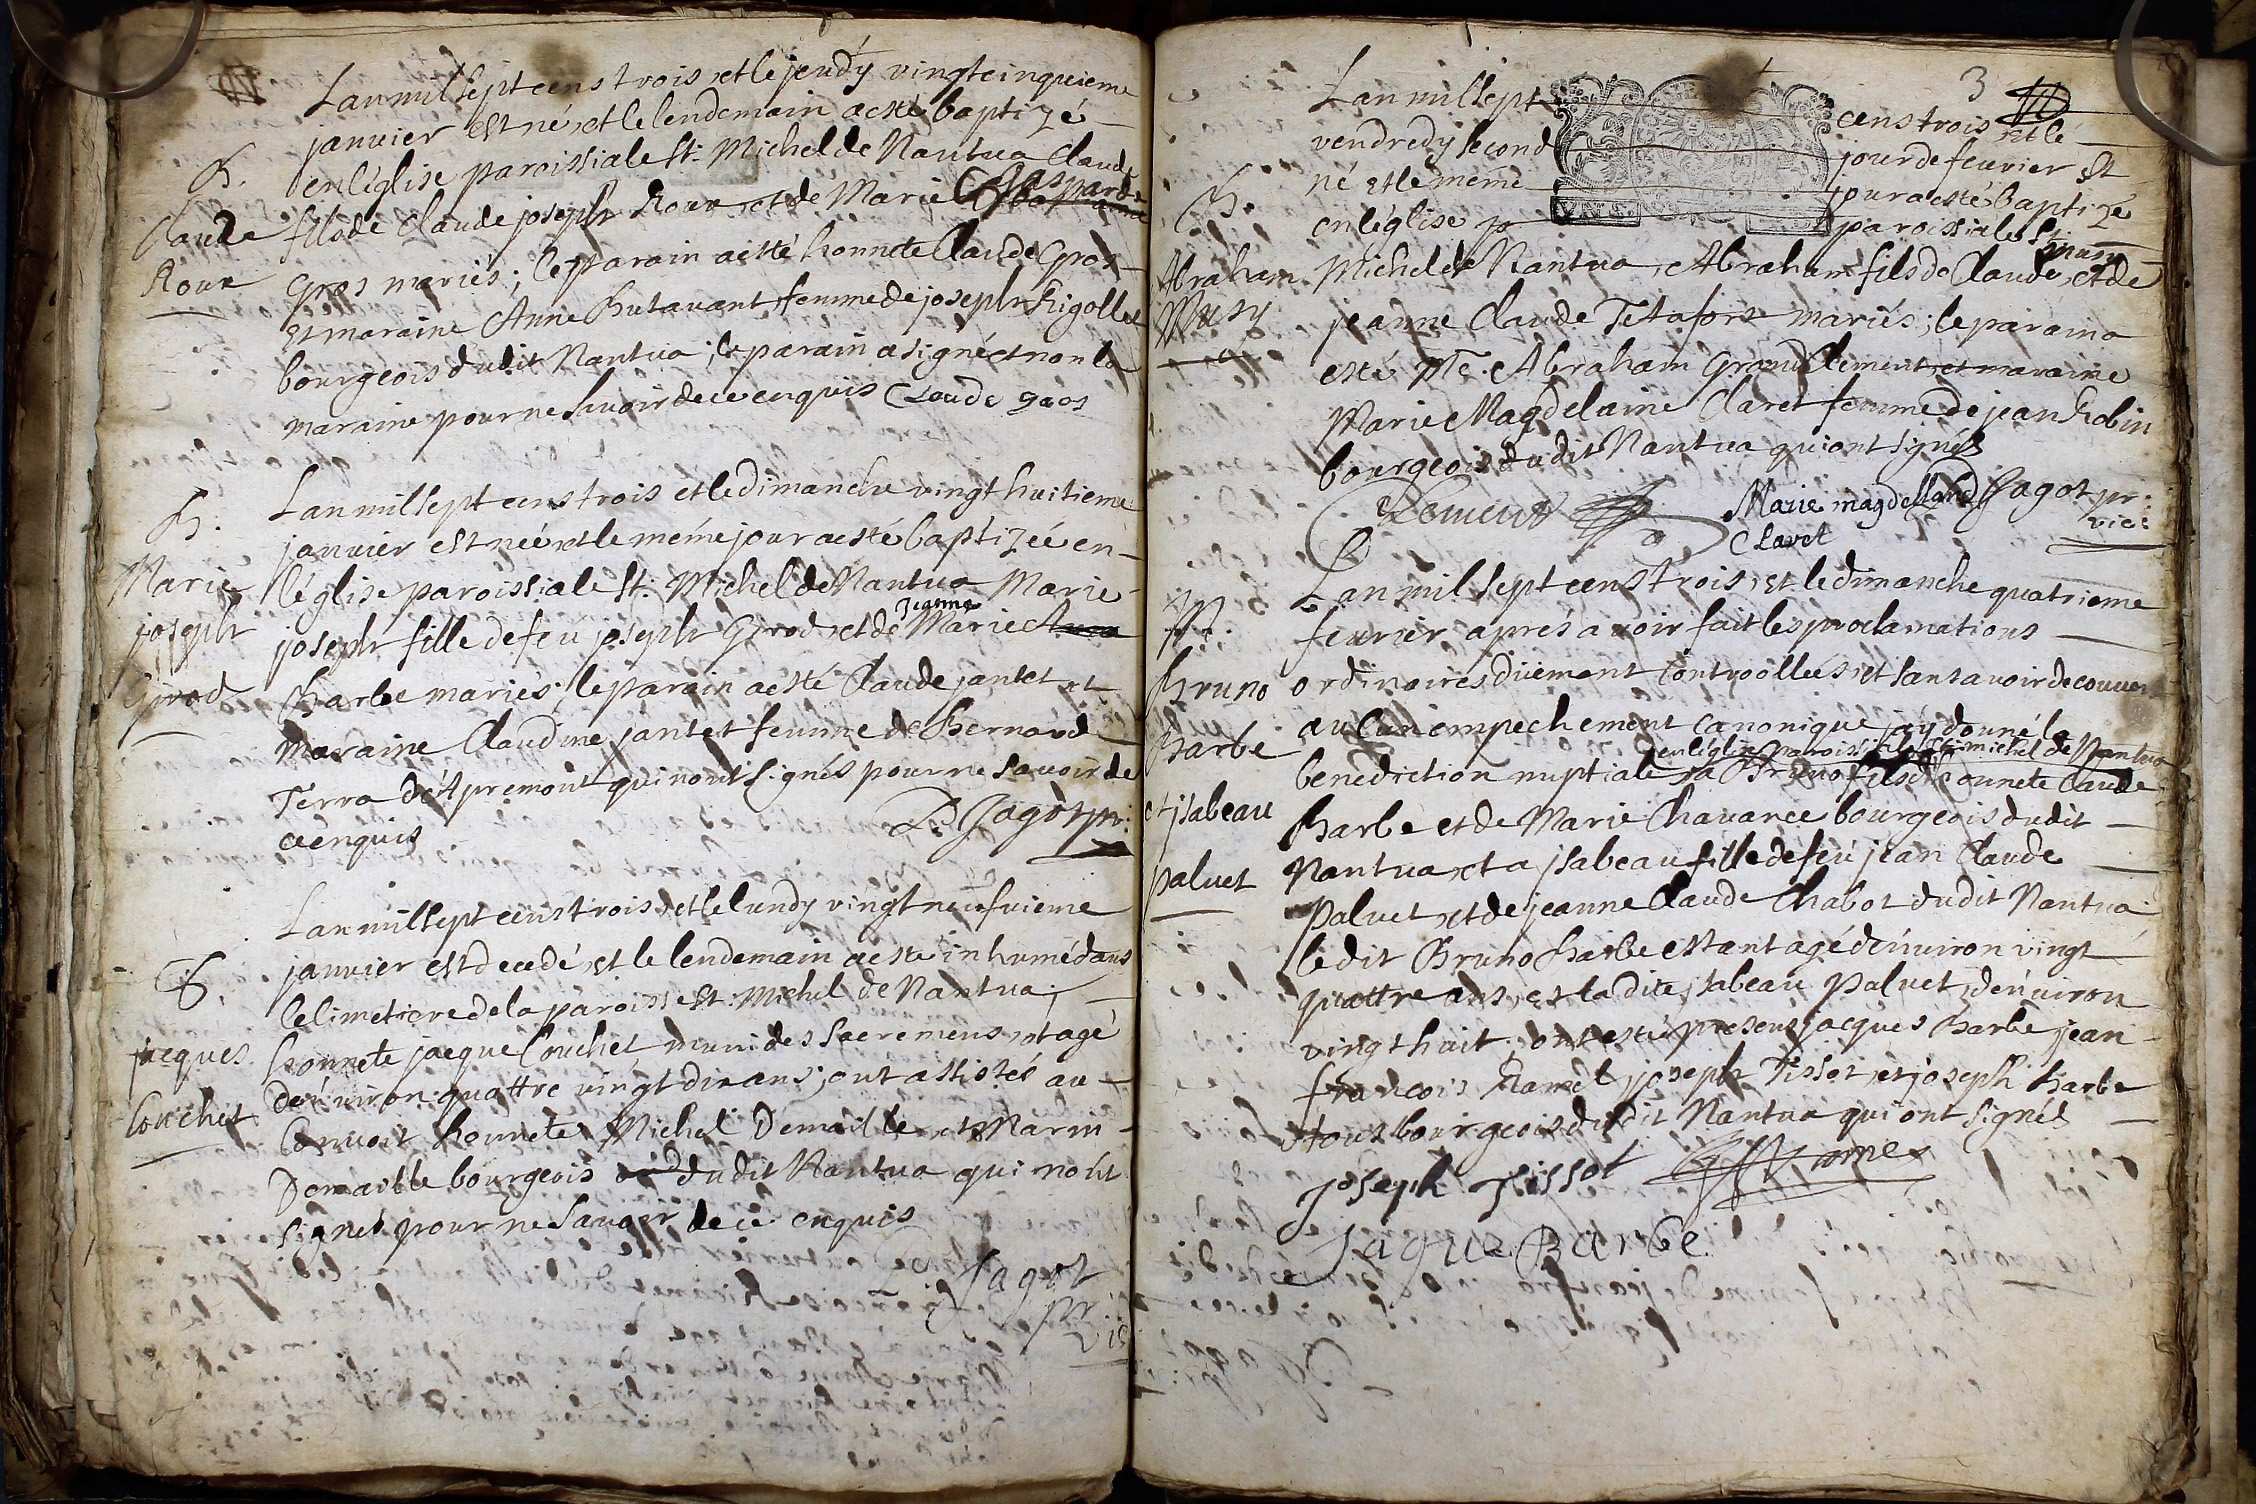 Lan mil sept cens trois et le jeudy vingtcinquieme
janvier est né et le lendemain a esté baptizé
en léglise paroissiale St. Michel de Nantua Claude
B.
Claude
Roux
fils de Claude joseph Roux et de Marie Gasparde
Gros mariés; le parain a esté honnete Claude Gros
et maraine Anne Butavant femme de joseph Rigollet
bourgeois dudit Nantua; le parain a signé et non la
maraine pour ne savoir de ce enquis Claude gros
B.
Marie
joseph
Grod
Lan mil sept cens trois et le dimanche vingt huitieme
janvier est née et le méme jour a esté baptizée en
léglise paroissiale St. Michel de Nantua Marie
joseph fille de feu joseph Grod et de Marie
jeanne
Barbe mariés; le parain a esté Claude jantet et
maraine Claudine jantet femme de Bernard
Terra d'Apremont qui nont signés pour ne savoir de
ce enquis
Jagot pr.
S.
jacques
Couchet
Lan mil sept cens trois et le lundy vingt neufvieme
janvier est decedé et le lendemain a esté inhumé dans
le cimetiere de la paroisse St. Michel de Nantua
honnete jacque Couchet muni des sacremens et agé
d'environ quattre vingt dix ans; ont assistés au
convoit honnetes Michel Demaille et Marin
Demaille bourgeois dudit Nantua qui nont
signés pour ne savoir de ce enquis
Jagot
pr
vic
3
Lan mil sept cens trois et le
vendredy second jour de fevrier est
né et le méme jour a esté baptizé
en léglise paroissiale St
B.
Abraham
Musy
musy
Michel de Nantua Abraham fils de Claude et de
jeanne Claude Tetafort mariés; le parain a
esté Me. Abraham Grand Clement et maraine
Marie Magdelaine Claret femme de jean Robin
bourgeois dudit Nantua qui ont signés
Clement Marie magdellaine Jagot pr.
Claret vic:
M.
Bruno
Barbe
et jsabeau
paluet
Lan mil sept cens trois, et le dimanche quatrieme
fevrier aprés avoir fait les proclamations
ordinaires düement controollées et sans avoir decouvert
aucun empechement canonique jay donné la
en léglise paroissiale St. michel de Nantua
benediction nuptiale a Bruno fils d'honnete Claude
Barbe et de Marie Chavance bourgeois dudit
Nantua et a jsabeau fille de feu jean Claude
Paluet et de jeanne Claude Chabot dudit Nantua
ledit Bruno Barbe estant agé d'environ vingt
quattre ans et ladite jsabeau Paluet d'environ
vingt huit; ont esté presens jacques Barbe jean
francois joseph Tissot et joseph Barbe
tous bourgeois dudit Nantua qui ont signés
Joseph Tissot
Jaque Barbe